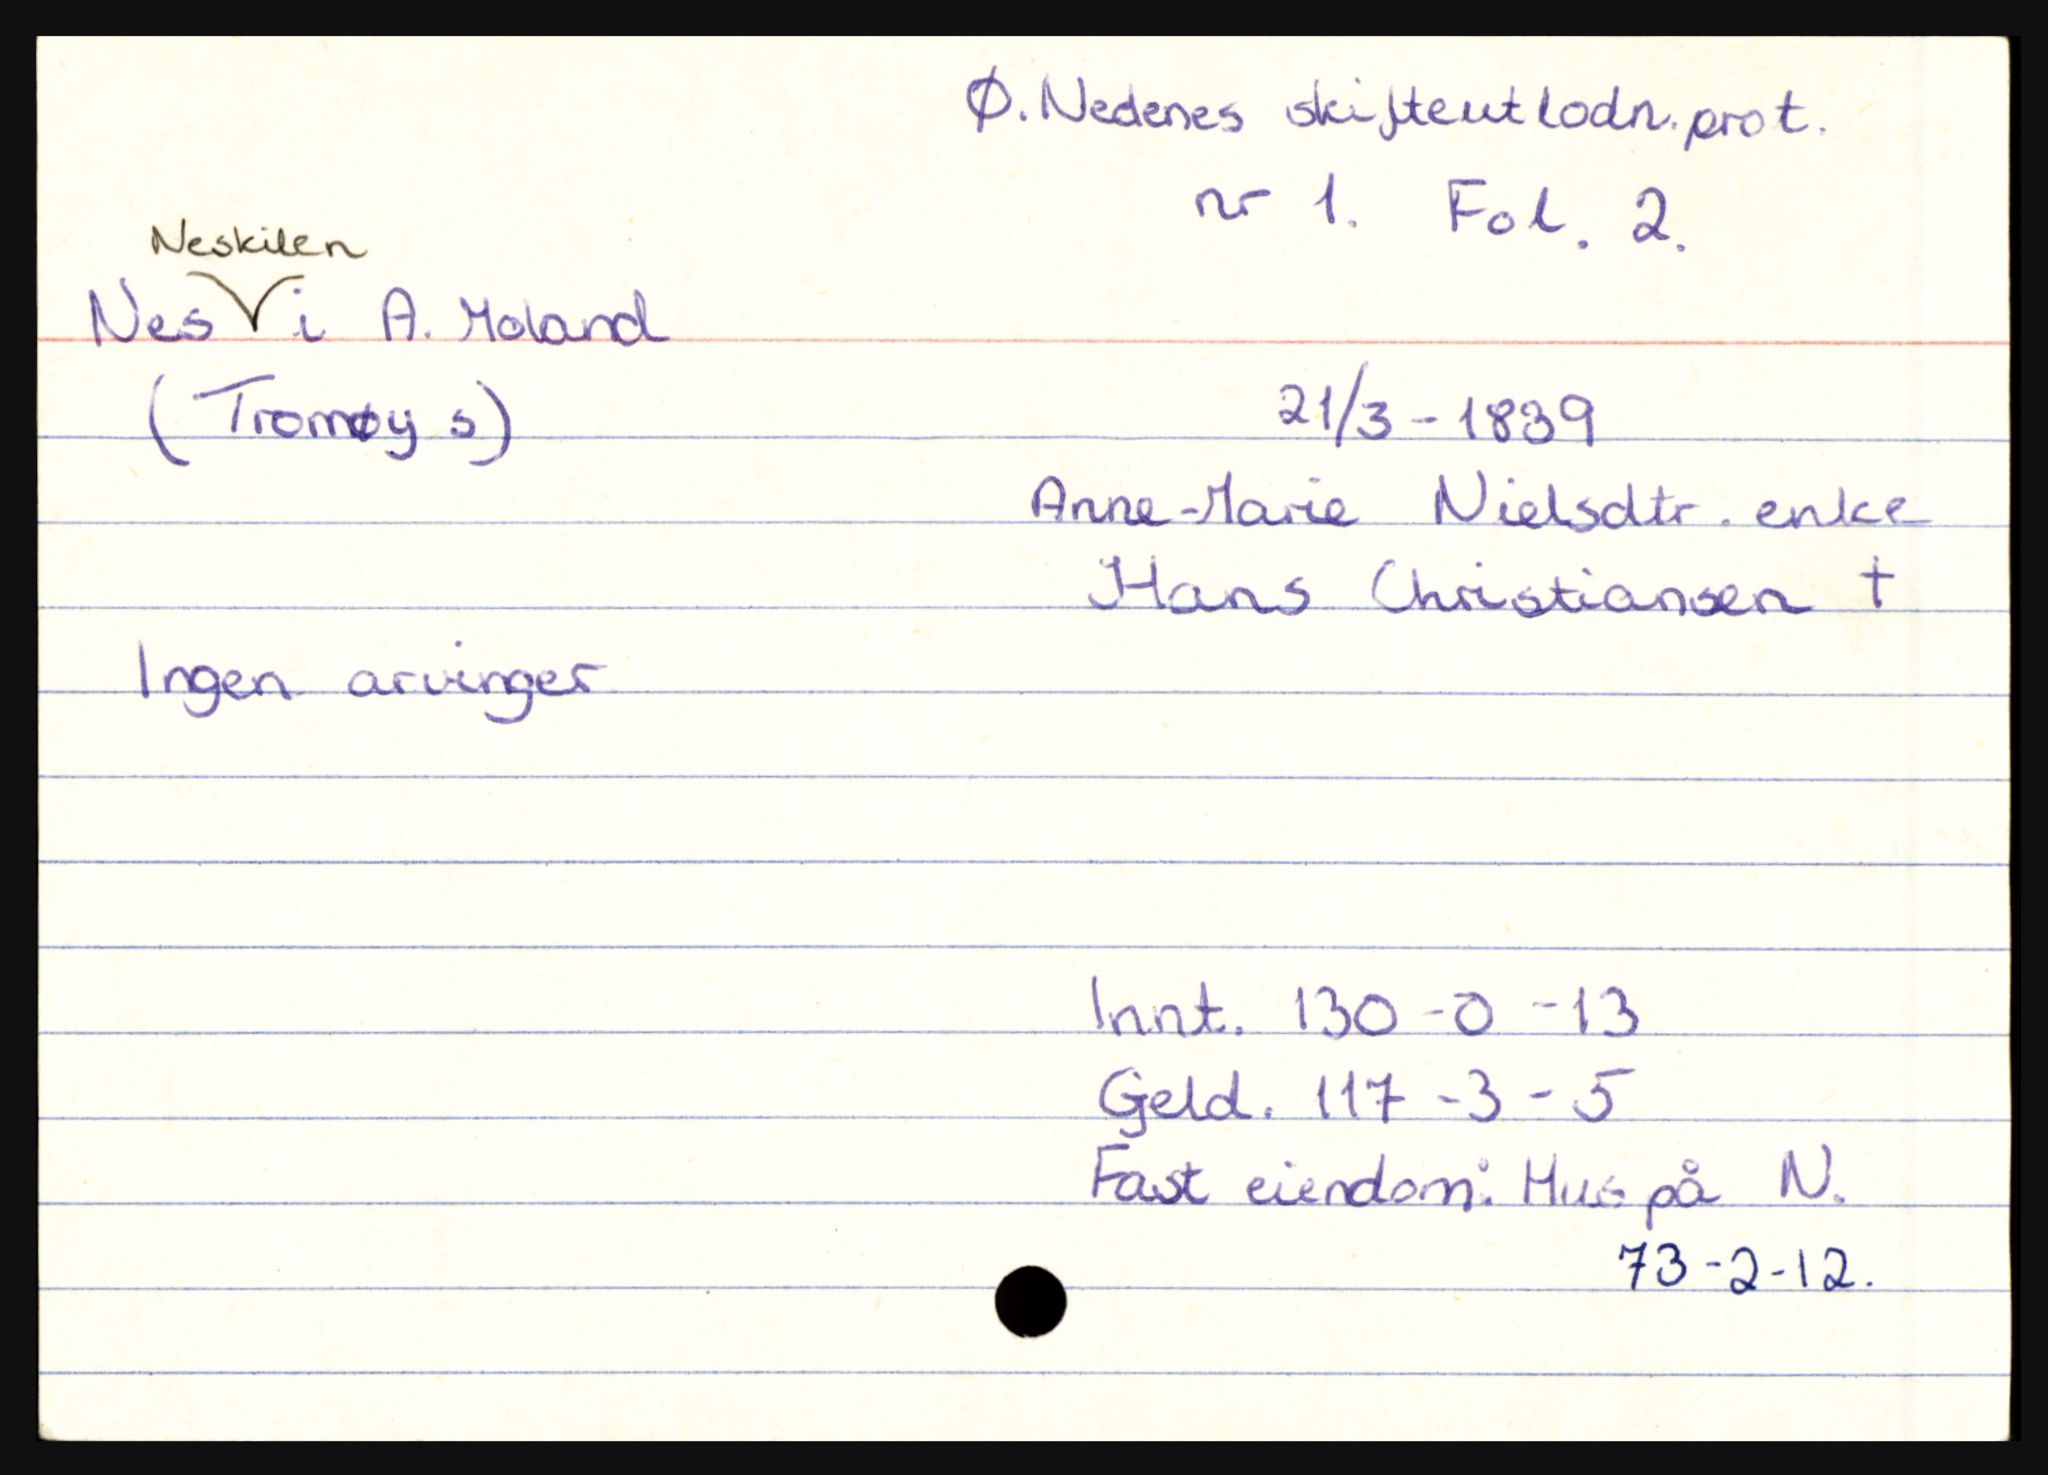 Ø. Nedenes skifteutlodn. prot.
nr 1. Fol. 2.
Neskilen
Nes i A. Moland
(Tromøy s)
21/3 - 1839
Anne-Marie Nielsdtr. enke
Hans Christiansen †
Ingen arvinger
Innt. 130 - 0 - 13
Geld. 117 - 3 - 5
Fast eiendom: Hus på N.
73 - 2 - 12.